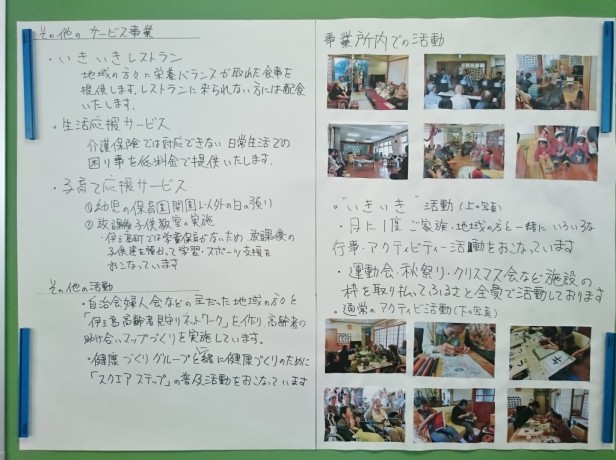 その他の サービス事業
・いきいきレストラン
地域の方々に栄養バランスが取れた食事を
提供します。レストランに来られない方には配食
いたします。
・生活応援サービス
介護保険では対応できない 日常生活での
困り事を低料金で提供いたします。
・子育て応援サービス
①幼児の保育園開園以外の日の預り
②放課後子供教室の実施
・伊王島町では学童保育がないため 放課後の
子供達を預かって学習・スポーツ支援を
おこなっています
その他の活動
・自治会婦人会などの主だった地域の方々と
「伊王島高齢者見守りネットワーク」を作り 高齢者の
助け合いマップづくりを実施しています。
・健康づくりグループと一緒に健康づくりのために
「スクエアステップ」の普及活動をおこなっています
事業所内での活動
○"いきいき"活動(上の写真)
・月に1度 ご家族・地域の方と一緒に いろいろな
行事・アクティビティー活動をおこなっています
・運動会・秋祭り・クリスマス会など 施設の
枠を取り払って ふるさと全員で活動しております
○通常のアクティビティ活動(下の写真)